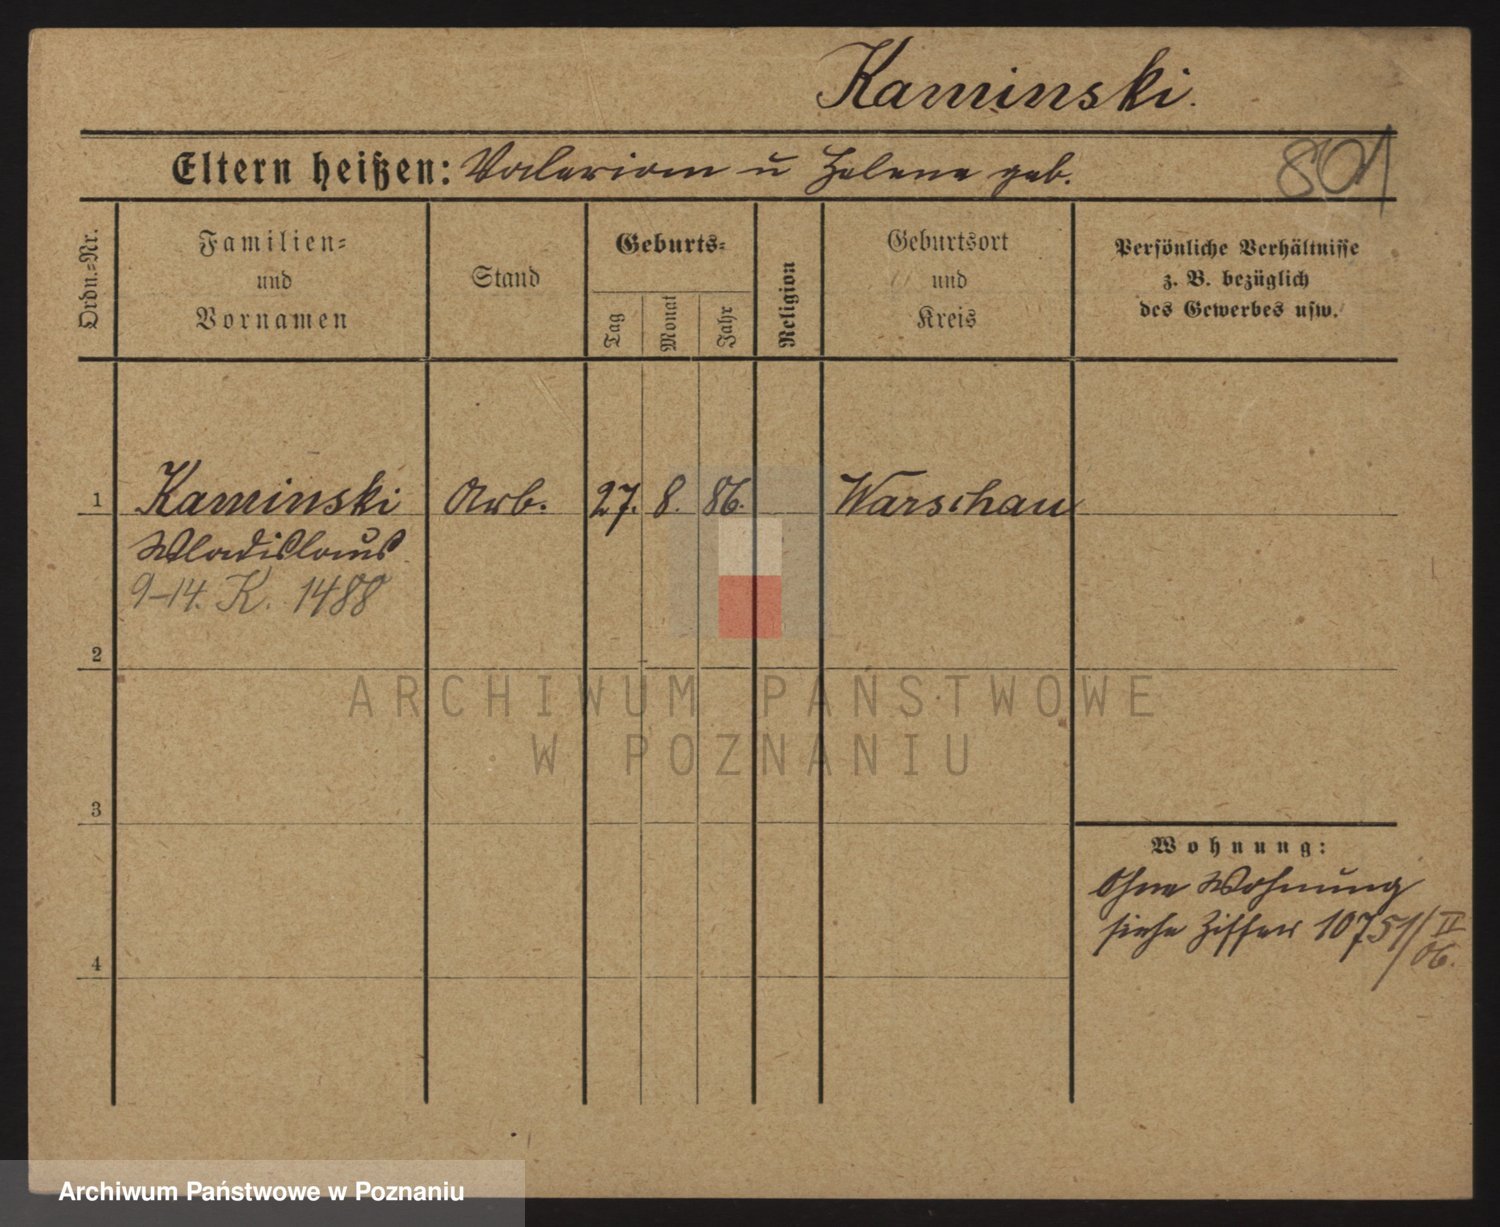 Kaminski.
801
Eltern heißen: Valerian u Helene geb.
Ordn.=Nr.
Familien=
und
Vornamen
Stand
Geburts=
Tag
Monat
Jahr
Religion
Geburtsort
und
Kreis
Persönliche Verhältnisse
z. B. bezüglich
des Gewerbes usw.
1 Kaminski Arb. 27. 8. 86. Warschau
Wladislaus
9-14. K. 1488
2
ARCHIWUM PAŃSTWOWE
W POZNANIU
3
Wohnung:
Ohne Wohnung
siehe Ziffer 10751/II
06.
4
Archiwum Państwowe w Poznaniu